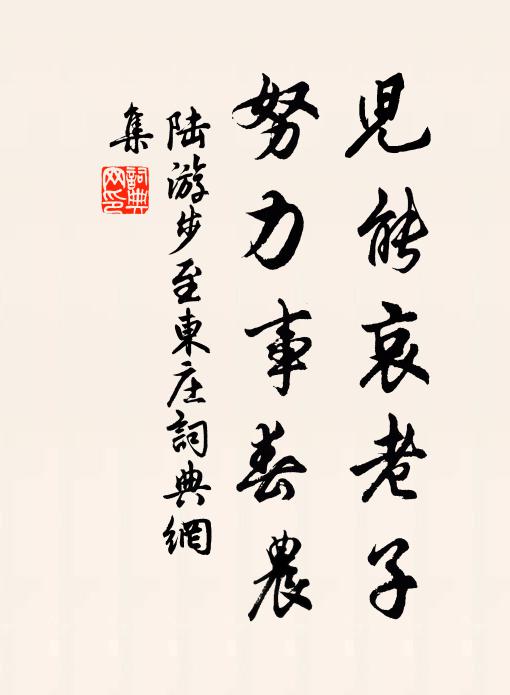 兒能哀老子
努力事春農
陆游步至東庄詞典網
集
詞典
网印